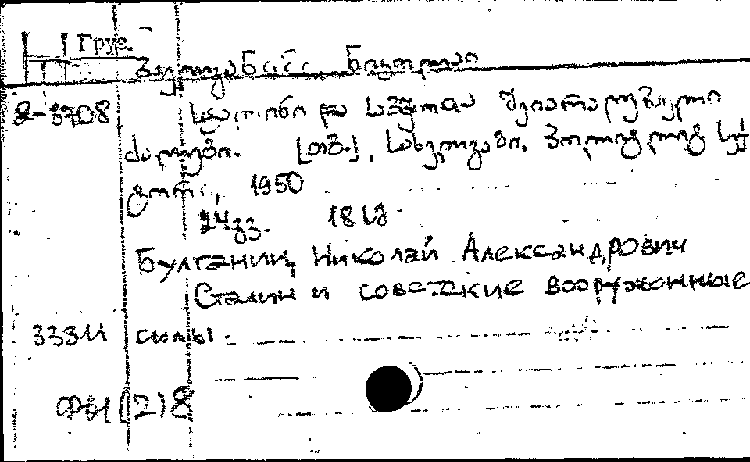 Груз.
ბულგანინი, ნიკოლაი
8-3708 სტალინი და საბჭოთა შეიარაღებული
ძალები. [თბ.], სახელგამი, პოლიგრ. სექ
ტორი, 1950
24გვ. 18სმ.
Булганин, Николай Александрович
Сталин и советские вооруженные
33311 силы.
(2)8